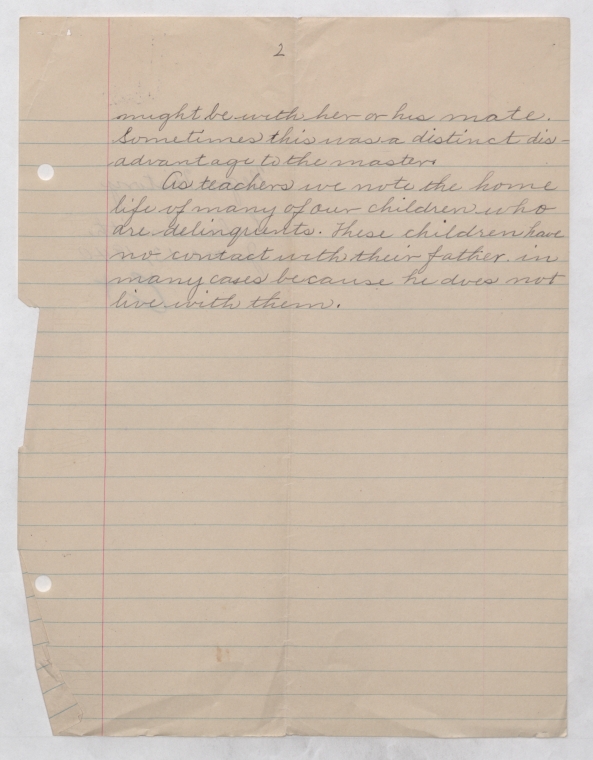 2
might be with her or his mate.
Sometimes this was a distinct dis-
advantage to the master.
As teachers we note the home
life of many of our children who
are delinquents. These children have
no contact with their father in
many cases because he does not
live with them.